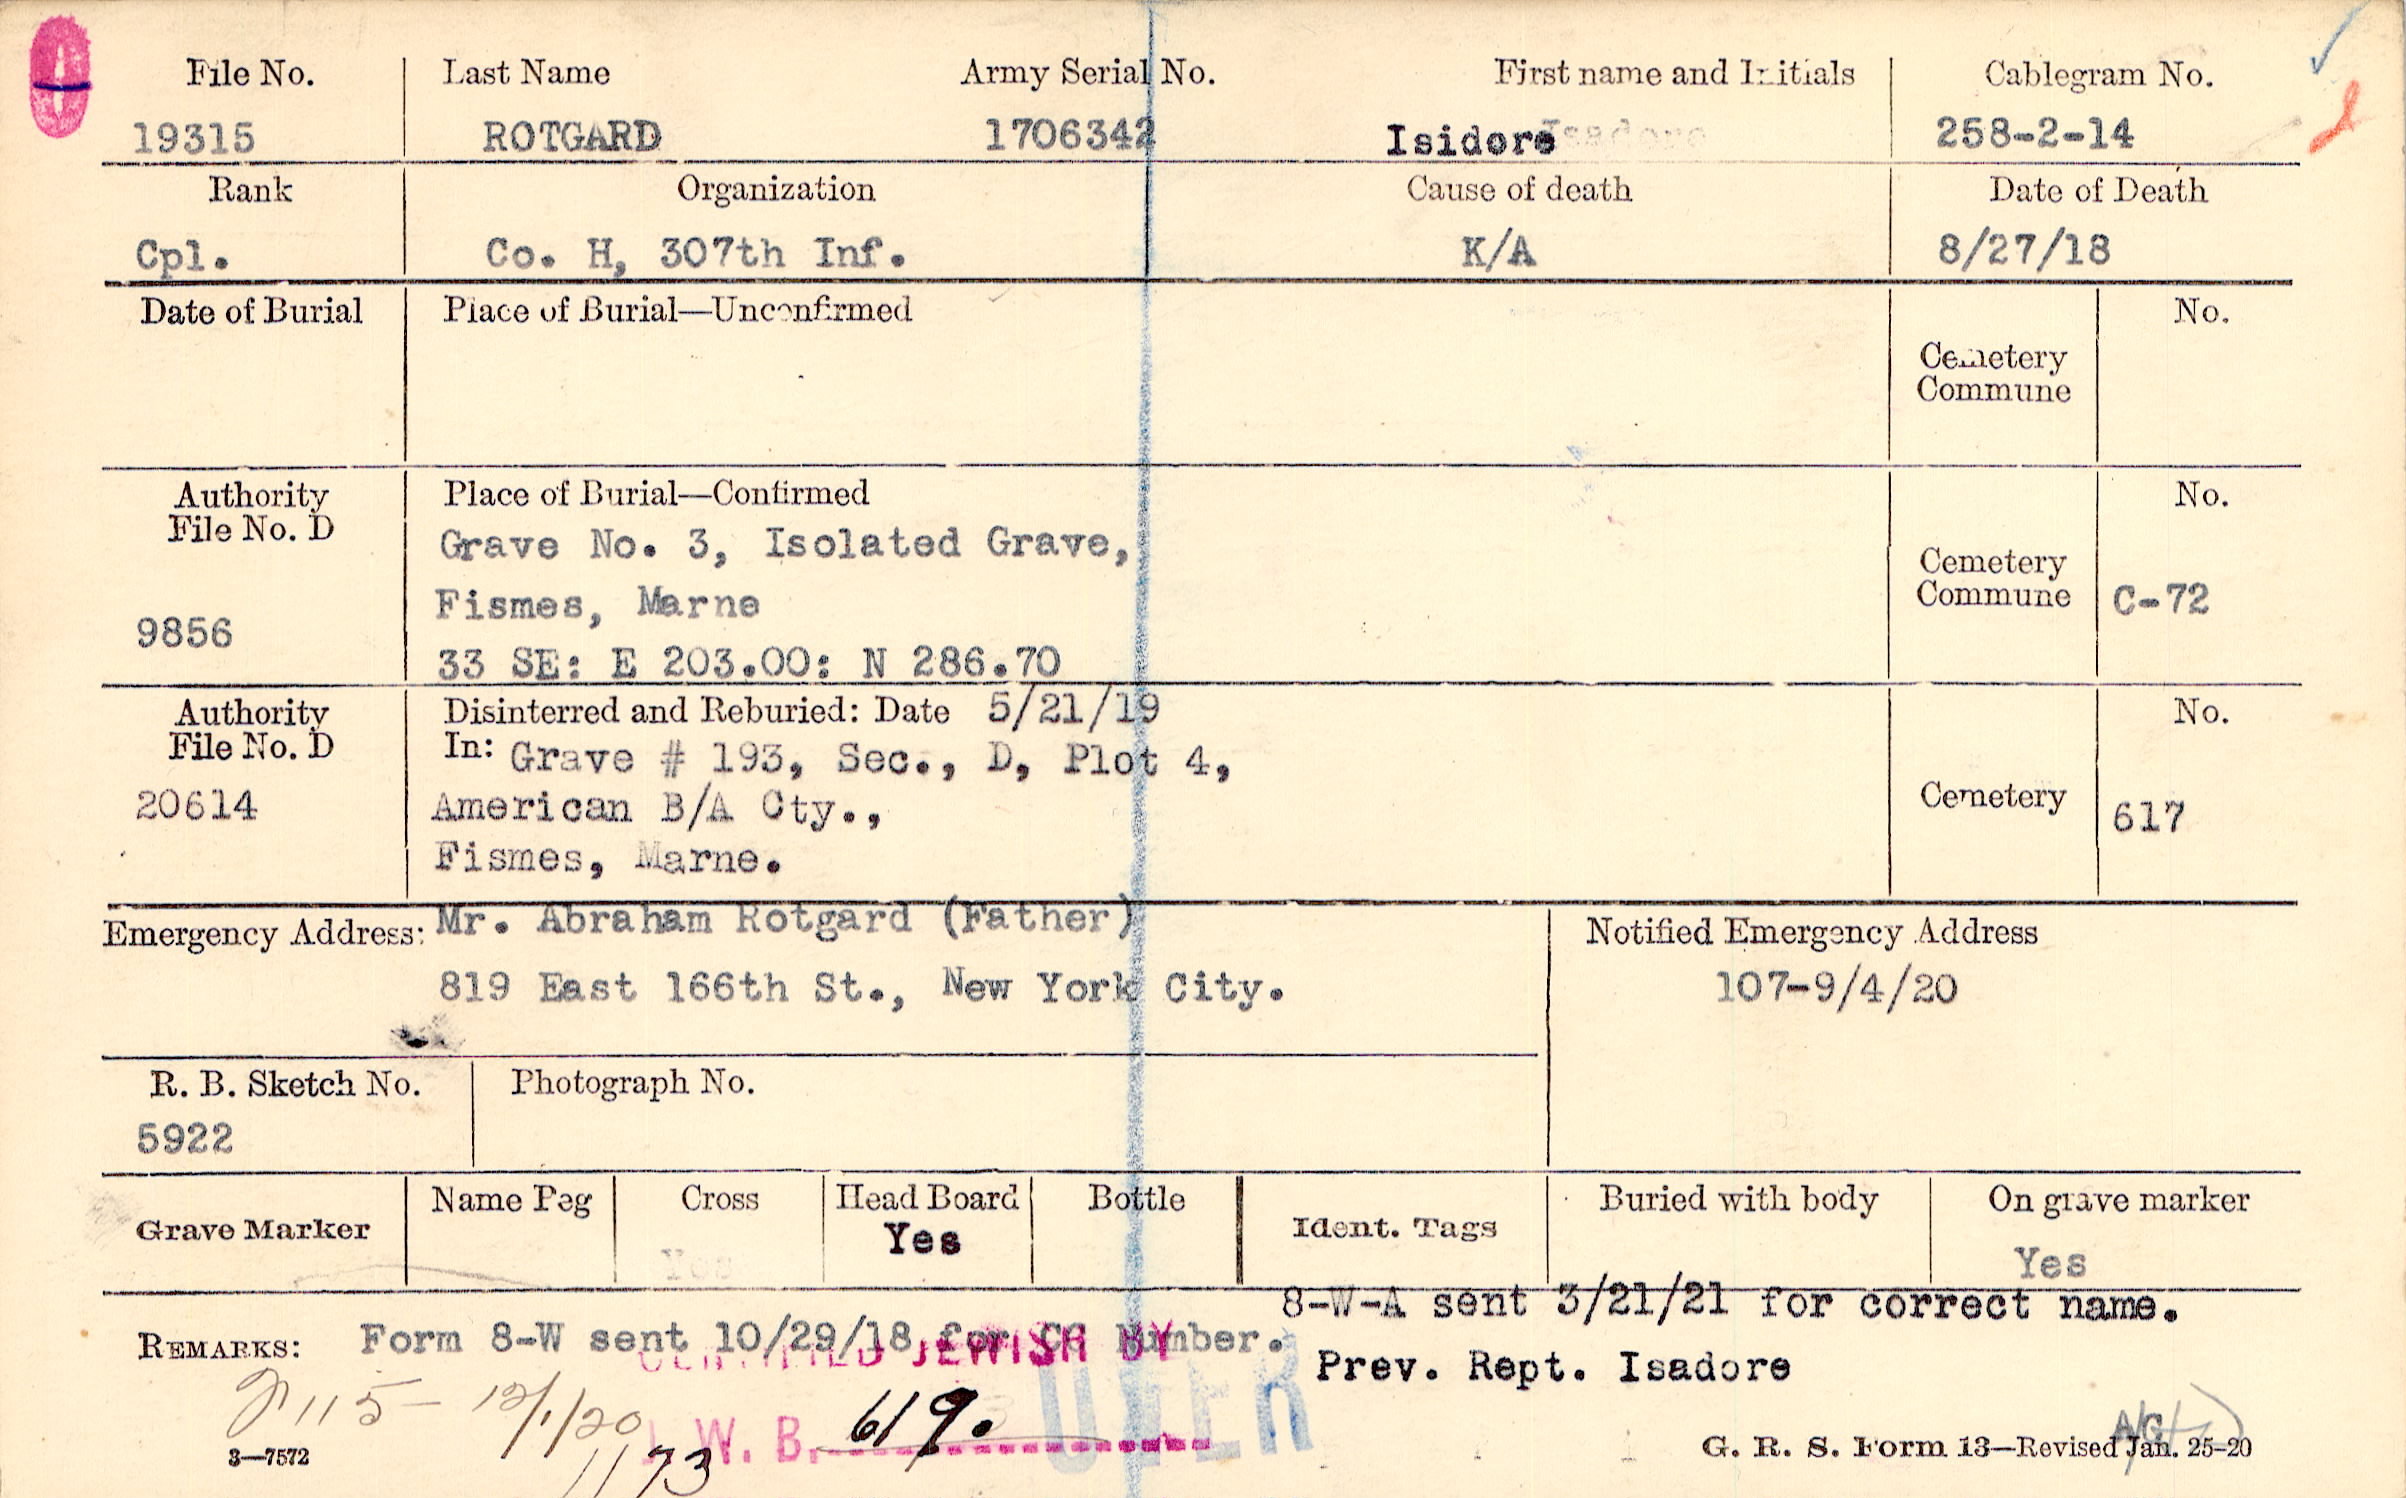 File No. Last Name Army Serial No. First name and Initials Cablegram No.
19315 ROTGARD 1706342 Isidore Isadore 258-2-14
Rank Organization Cause of death Date of Death
Cpl. Co. H, 307th Inf. K/A 8/27/18
Date of Burial Place of Burial—Unconfirmed No.
Cemetery
Commune
Authority Place of Burial—Confirmed No.
File No. D Grave No. 3, Isolated Grave,
Cemetery
Fismes, Marne Commune C-72
9856
33 SE: E 203.00: N 286.70
Authority Disinterred and Reburied: Date 5/21/19 No.
File No. D In: Grave # 193, Sec., D, Plot 4,
20614 American B/A Cty., Cemetery 617
Fismes, Marne.
Emergency Address: Mr. Abraham Rotgard (Father) Notified Emergency Address
819 East 166th St., New York City. 107-9/4/20
R. B. Sketch No. Photograph No.
5922
Grave Marker Name Peg Cross Head Board Bottle Ident. Tags Buried with body On grave marker
Yes Yes Yes
8-W-A sent 3/21/21 for correct name.
REMARKS: Form 8-W sent 10/29/18 for CC Number.
CERTIFIED JEWISH BY
Prev. Rept. Isadore
115- 12/1/20
J. W. B. 619.
3—7572 1173
G. R. S. Form 13—Revised Jan. 25-20